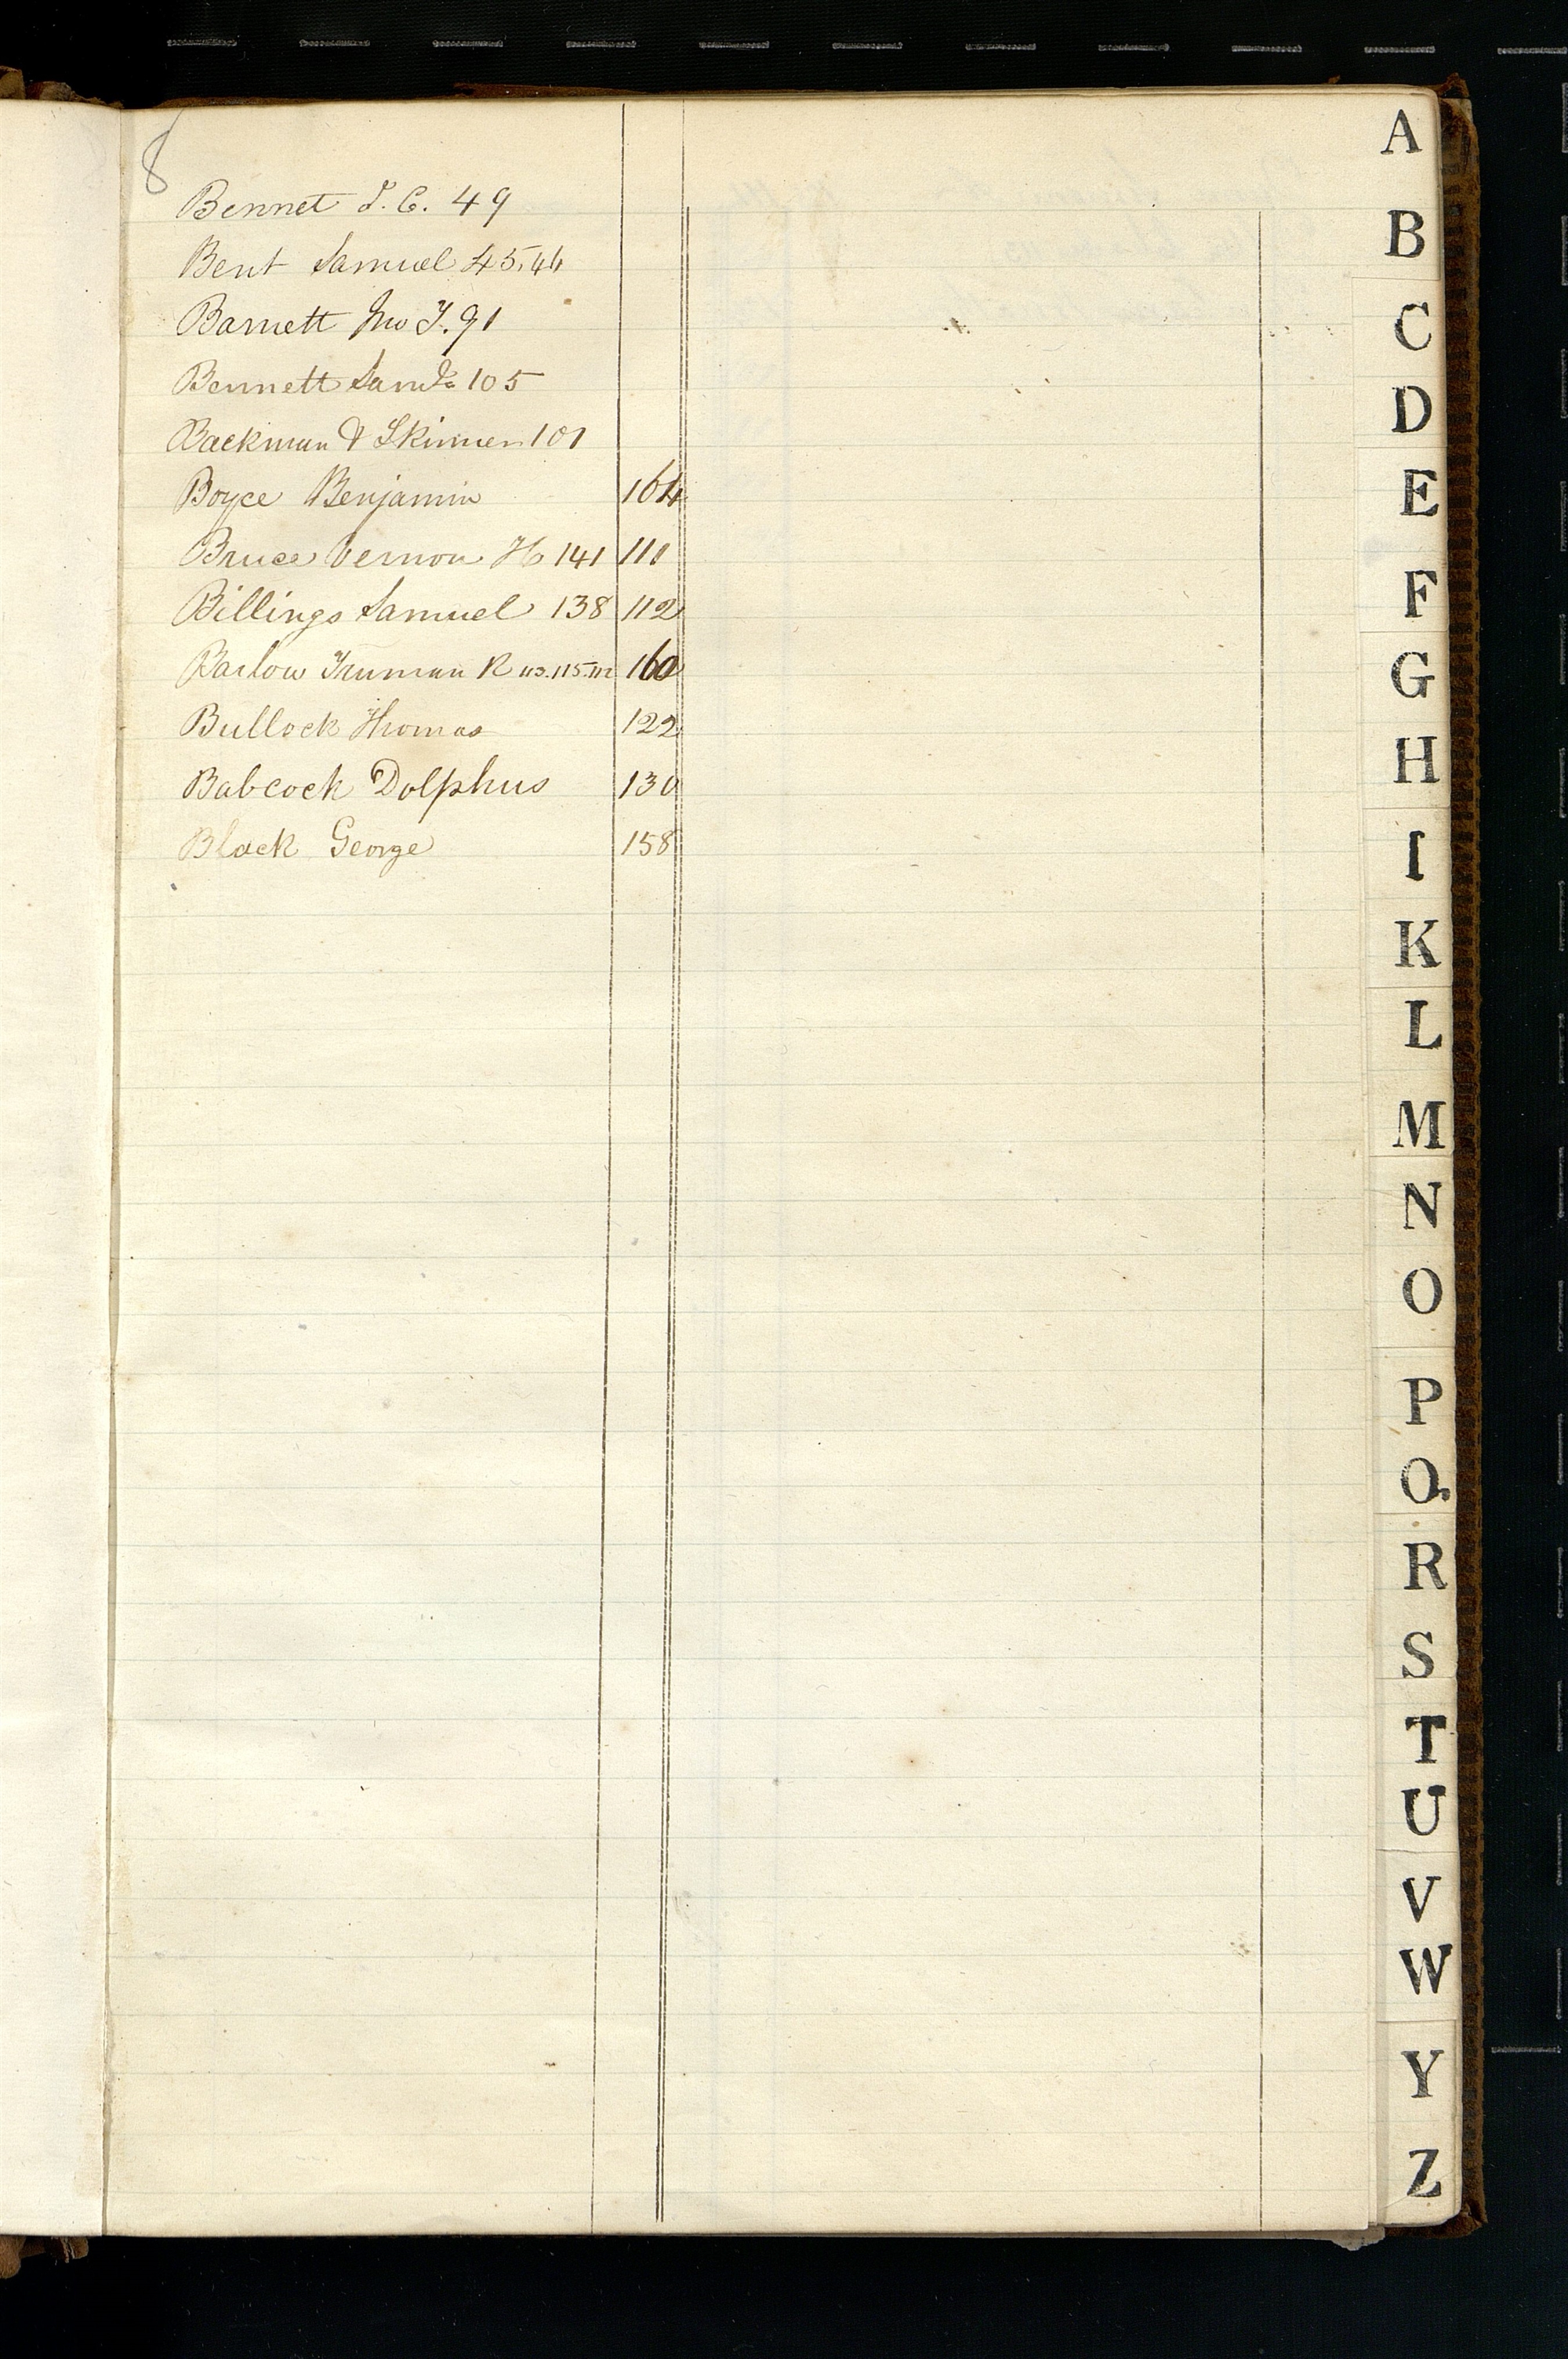 8
Bennet J. C. 49
Bent Samuel 45, 46
Barnett Jno T. 91
Bennett Saml 105
Backman & Skinner 101
Boyce Benjamin 164
Bruce Vernon H 141 111
Billings Samuel 138 112
Barlow Truman R 160
Bullock Thomas 122
Babcock Dolphus 130
Black George 158
A
B
C
D
E
F
G
H
I
K
L
M
N
O
P
Q
R
S
T
U
V
W
Y
Z